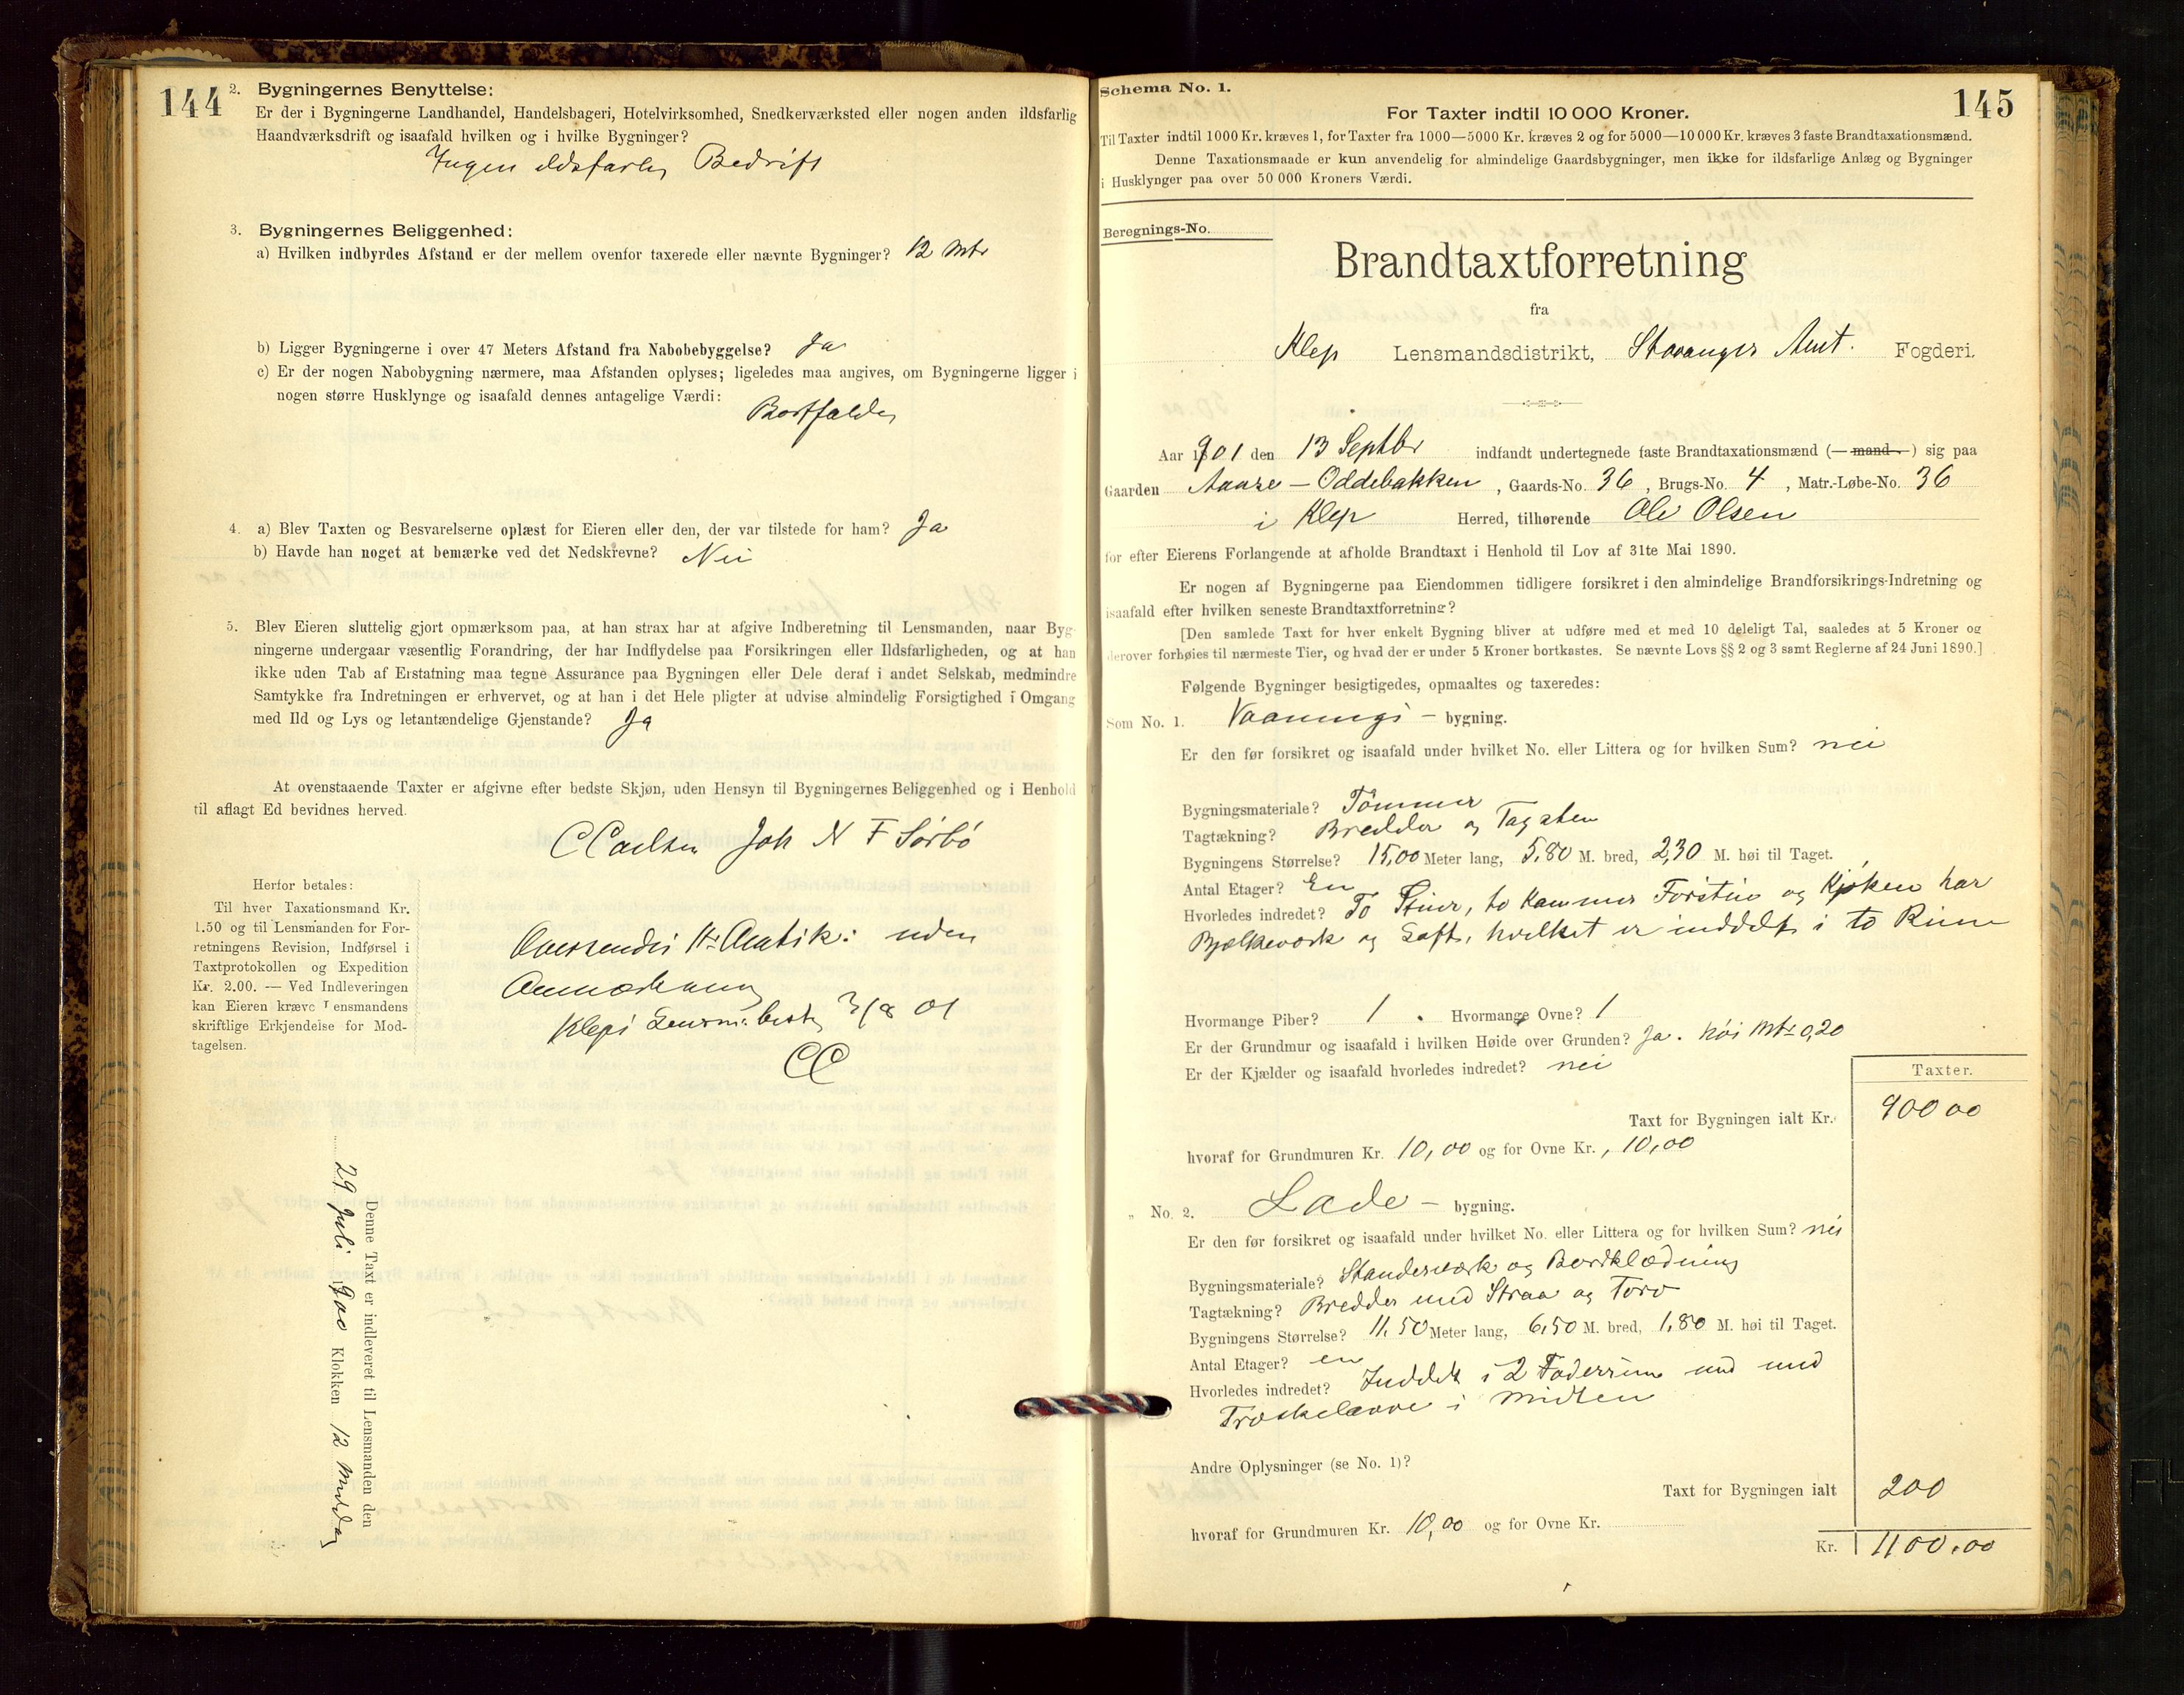 144
2. Bygningernes Benyttelse:
Er der i Bygningerne Landhandel, Handelsbageri, Hotelvirksomhed, Snedkerværksted eller nogen anden ildsfarlig
Haandværksdrift og isaafald hvilken og i hvilke Bygninger?
Ingen ildsfarlig Bedrift
3. Bygningernes Beliggenhed:
a) Hvilken indbyrdes Afstand er der mellem ovenfor taxerede eller nævnte Bygninger? 12 Mtr
b) Ligger Bygningerne i over 47 Meters Afstand fra Nabobebyggelse? Ja
c) Er der nogen Nabobygning nærmere, maa Afstanden oplyses; ligeledes maa angives, om Bygningerne ligger i
nogen større Husklynge og isaafald dennes antagelige Værdi:
Bortfalder
4. a) Blev Taxten og Besvarelserne oplæst for Eieren eller den, der var tilstede for ham? Ja
b) Havde han noget at bemærke ved det Nedskrevne? Nei
5. Blev Eieren sluttelig gjort opmærksom paa, at han strax har at afgive Indberetning til Lensmanden, naar Byg-
ningerne undergaar væsentlig Forandring, der har Indflydelse paa Forsikringen eller Ildsfarligheden, og at han
ikke uden Tab af Erstatning maa tegne Assurance paa Bygningen eller Dele deraf i andet Selskab, medmindre
Samtykke fra Indretningen er erhvervet, og at han i det Hele pligter at udvise almindelig Forsigtighed i Omgang
med Ild og Lys og letantændelige Gjenstande? Ja
At ovenstaaende Taxter er afgivne efter bedste Skjøn, uden Hensyn til Bygningernes Beliggenhed og i Henhold
til aflagt Ed bevidnes herved.
C Carlsen Joh N F Sørbø
Herfor betales:
Til hver Taxationsmand Kr.
1.50 og til Lensmanden for For-
retningens Revision, Indførsel i
Taxtprotokollen og Expedition
Kr. 2.00. — Ved Indleveringen
kan Eieren kræve Lensmandens
skriftlige Erkjendelse for Mod-
tagelsen.
Oversendes uden
Anmærkning
Klep 01
CC
Denne Taxt er indleveret til Lensmanden den
29 Juli 1900 Klokken 12 Middag
Schema No. 1.
145
For Taxter indtil 10 000 Kroner.
Til Taxter indtil 1000 Kr. kræves 1, for Taxter fra 1000—5000 Kr. kræves 2 og for 5000—10 000 Kr. kræves 3 faste Brandtaxationsmænd.
Denne Taxationsmaade er kun anvendelig for almindelige Gaardsbygninger, men ikke for ildsfarlige Anlæg og Bygninger
i Husklynger paa over 50 000 Kroners Værdi.
Beregnings-No.
Brandtaxtforretning
fra
Klep Lensmandsdistrikt, Stavanger Amt. Fogderi.
Aar 1901 den 13 Septbr indfandt undertegnede faste Brandtaxationsmænd (— mand — ) sig paa
Gaarden Aanze — Oddebakken, Gaards-No. 36, Brugs-No. 4, Matr.-Løbe-No. 36
i Klep Herred, tilhørende Ole Olsen
for efter Eierens Forlangende at afholde Brandtaxt i Henhold til Lov af 31te Mai 1890.
Er nogen af Bygningerne paa Eiendommen tidligere forsikret i den almindelige Brandforsikrings-Indretning og
isaafald efter hvilken seneste Brandtaxtforretning?
[Den samlede Taxt for hver enkelt Bygning bliver at udføre med et med 10 deleligt Tal, saaledes at 5 Kroner og
derover forhøies til nærmeste Tier, og hvad der er under 5 Kroner bortkastes. Se nævnte Lovs §§ 2 og 3 samt Reglerne af 24 Juni 1890.]
Følgende Bygninger besigtigedes, opmaaltes og taxeredes:
Som No. 1. Vaanings — bygning.
Er den før forsikret og isaafald under hvilket No. eller Littera og for hvilken Sum? nei
Bygningsmateriale? Tømmer
Tagtækning? Bredder og Tagsten
Bygningens Størrelse? 15,00 Meter lang, 5,80 M. bred, 2,30 M. høi til Taget.
Antal Etager? En
Hvorledes indredet? To Stuer, to Kammer Forstue og Kjøken har
Bjelkeværk og Loft, hvilket er inddelt i to Rum
Hvormange Piber? 1 . Hvormange Ovne? 1
Er der Grundmur og isaafald i hvilken Høide over Grunden? Ja. høi Mtr 0,20
Er der Kjælder og isaafald hvorledes indredet? nei
Taxter.
Taxt for Bygningen ialt Kr. 900 00
hvoraf for Grundmuren Kr. 10,00 og for Ovne Kr., 10,00
„ No. 2. Lade — bygning.
Er den før forsikret og isaafald under hvilket No. eller Littera og for hvilken Sum? nei
Bygningsmateriale? Standerværk og Bordklædning
Tagtækning? Bredder med Straa og Torv
Bygningens Størrelse? 11,50 Meter lang, 6,50 M. bred, 1,80 M. høi til Taget.
Antal Etager? en
Hvorledes indredet? Inddelt i 2 Foderrum med
Træskelaave i Midten
Andre Oplysninger (se No. 1)?
Taxt for Bygningen ialt 200
hvoraf for Grundmuren Kr. 10,00 og for Ovne Kr.
Kr. 1100.00